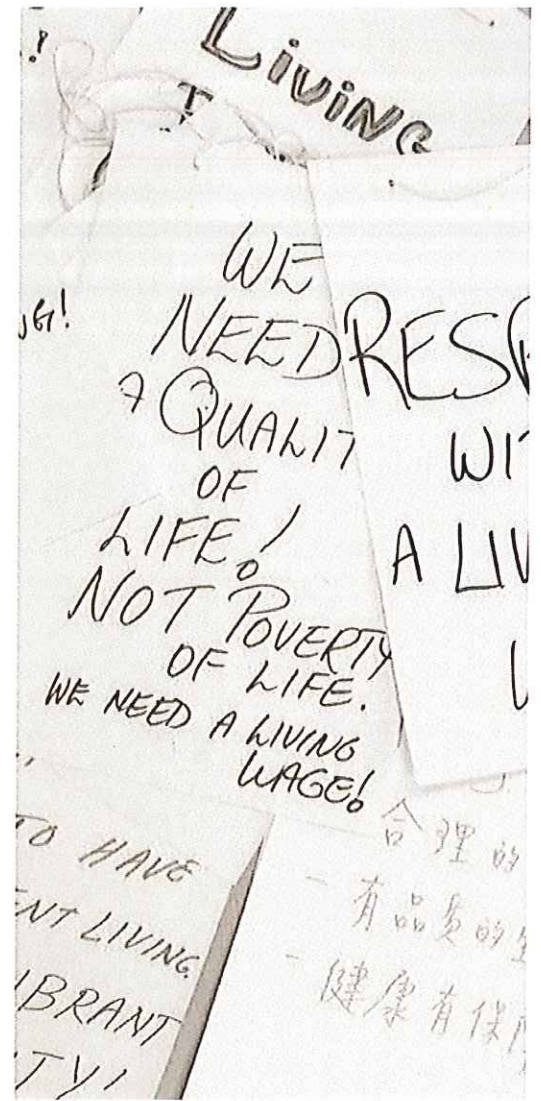 Living
WE
NEED
A QUALIT
OF
LIFE!
NOT POVERTY
OF LIFE.
WE NEED A LIVING
WAGE!
RES
WI
A LIV
TO HAVE
ENT LIVING.
BRANT
TY!
合理的
- 有品質的生
- 健康有保